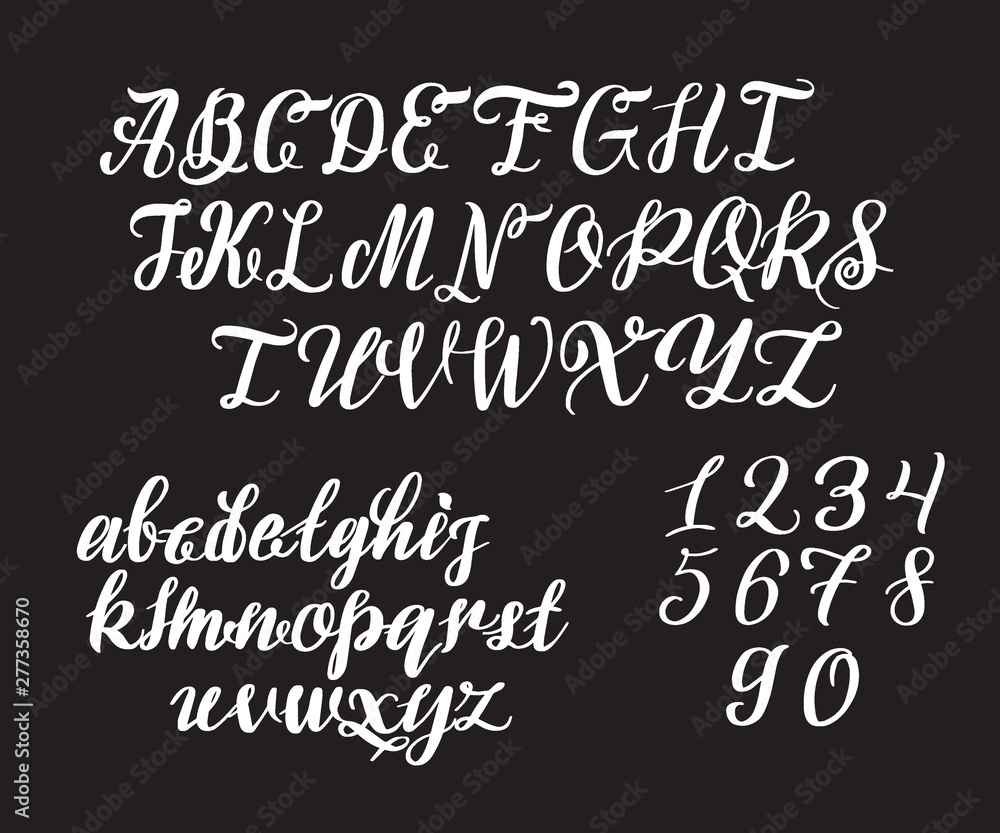 ABCDEFGHI
JKLMNOPQRS
TUVWXYZ
abcdefghij
klmnopqrst
uvwxyz
1234
5678
90
Adobe Stock | #277358670